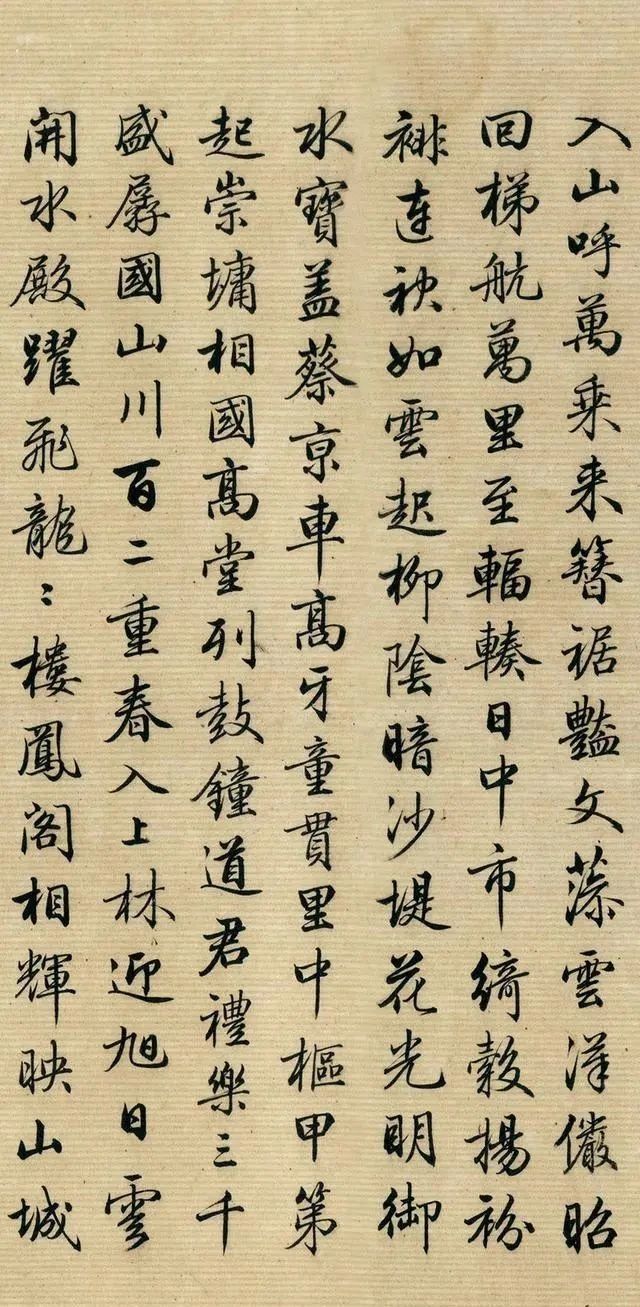 入山呼萬乗来簪裾艷文藻雲漢儼昭
回梯航萬里至輻輳日中市綺縠揚衯
裶連袂如雲起柳陰暗沙堤花光明御
水寶盖蔡京車髙牙童貫里中樞甲第
起崇墉相國髙堂列鼓鐘道君禮樂三千
盛孱國山川百二重春入上林迎旭日雲
開水殿躍飛龍〻樓鳳閣相輝映山城